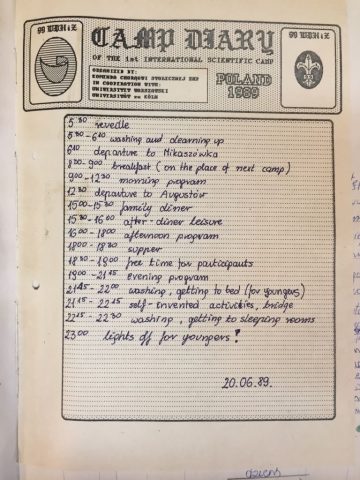 99 WBH:Z
CAMP DIARY
99 WBH:Z
OF THE 1st INTERNATIONAL SCIENTIFIC CAMP
ORGANIZED BY:
KOMENDA CHORĄGWI STOŁECZNEJ ZHP
IN COOPERATION WITH:
UNIWERSYTET WARSZAWSKI
UNIVERSITÄT zu KÖLN
POLAND
1989
5 30 reveille
5 30 - 6 10 washing and clearning up
6 10 departure to Mikaszówka
8 20 - 9 00 breakfast (on the place of next camp)
9 00 - 12 30 morning program
12 30 departure to Augustów
15 00 - 15 30 family diner
15 30 - 16 00 after-diner leisure
16 00 - 18 00 afternoon program
18 00 - 18 30 supper
18 30 - 19 00 free time for participants
19 00 - 21 15 evening program
21 45 - 22 00 washing, getting to bed (for youngers)
21 15 - 22 15 self-invented activities, bridge
22 15 - 22 30 washing, getting to sleeping rooms
23 00 lights off for youngers!
20.06.89.